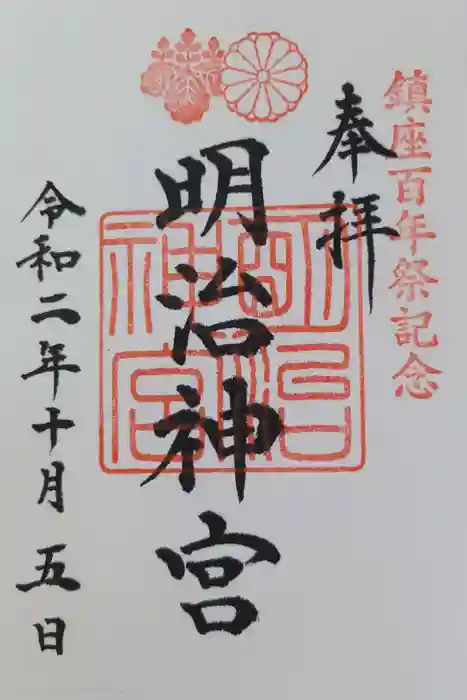 鎮座百年祭記念
奉拝
明治神宮
明治神宮
令和二年十月五日